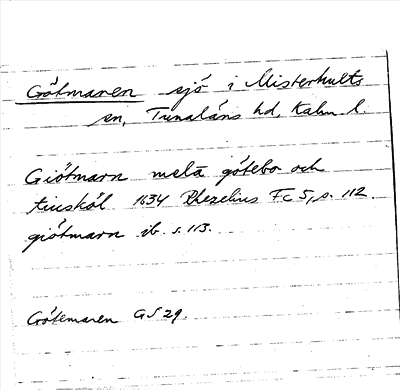 Götmaren sjö i Misterhults
sn, Tunaläns hd, Kalm. l.
Giötmarn mela götebo och
1634 Rhezelius Fc 5, s. 112.
giötmarn ib. s. 113.
Götemaren GS 29.